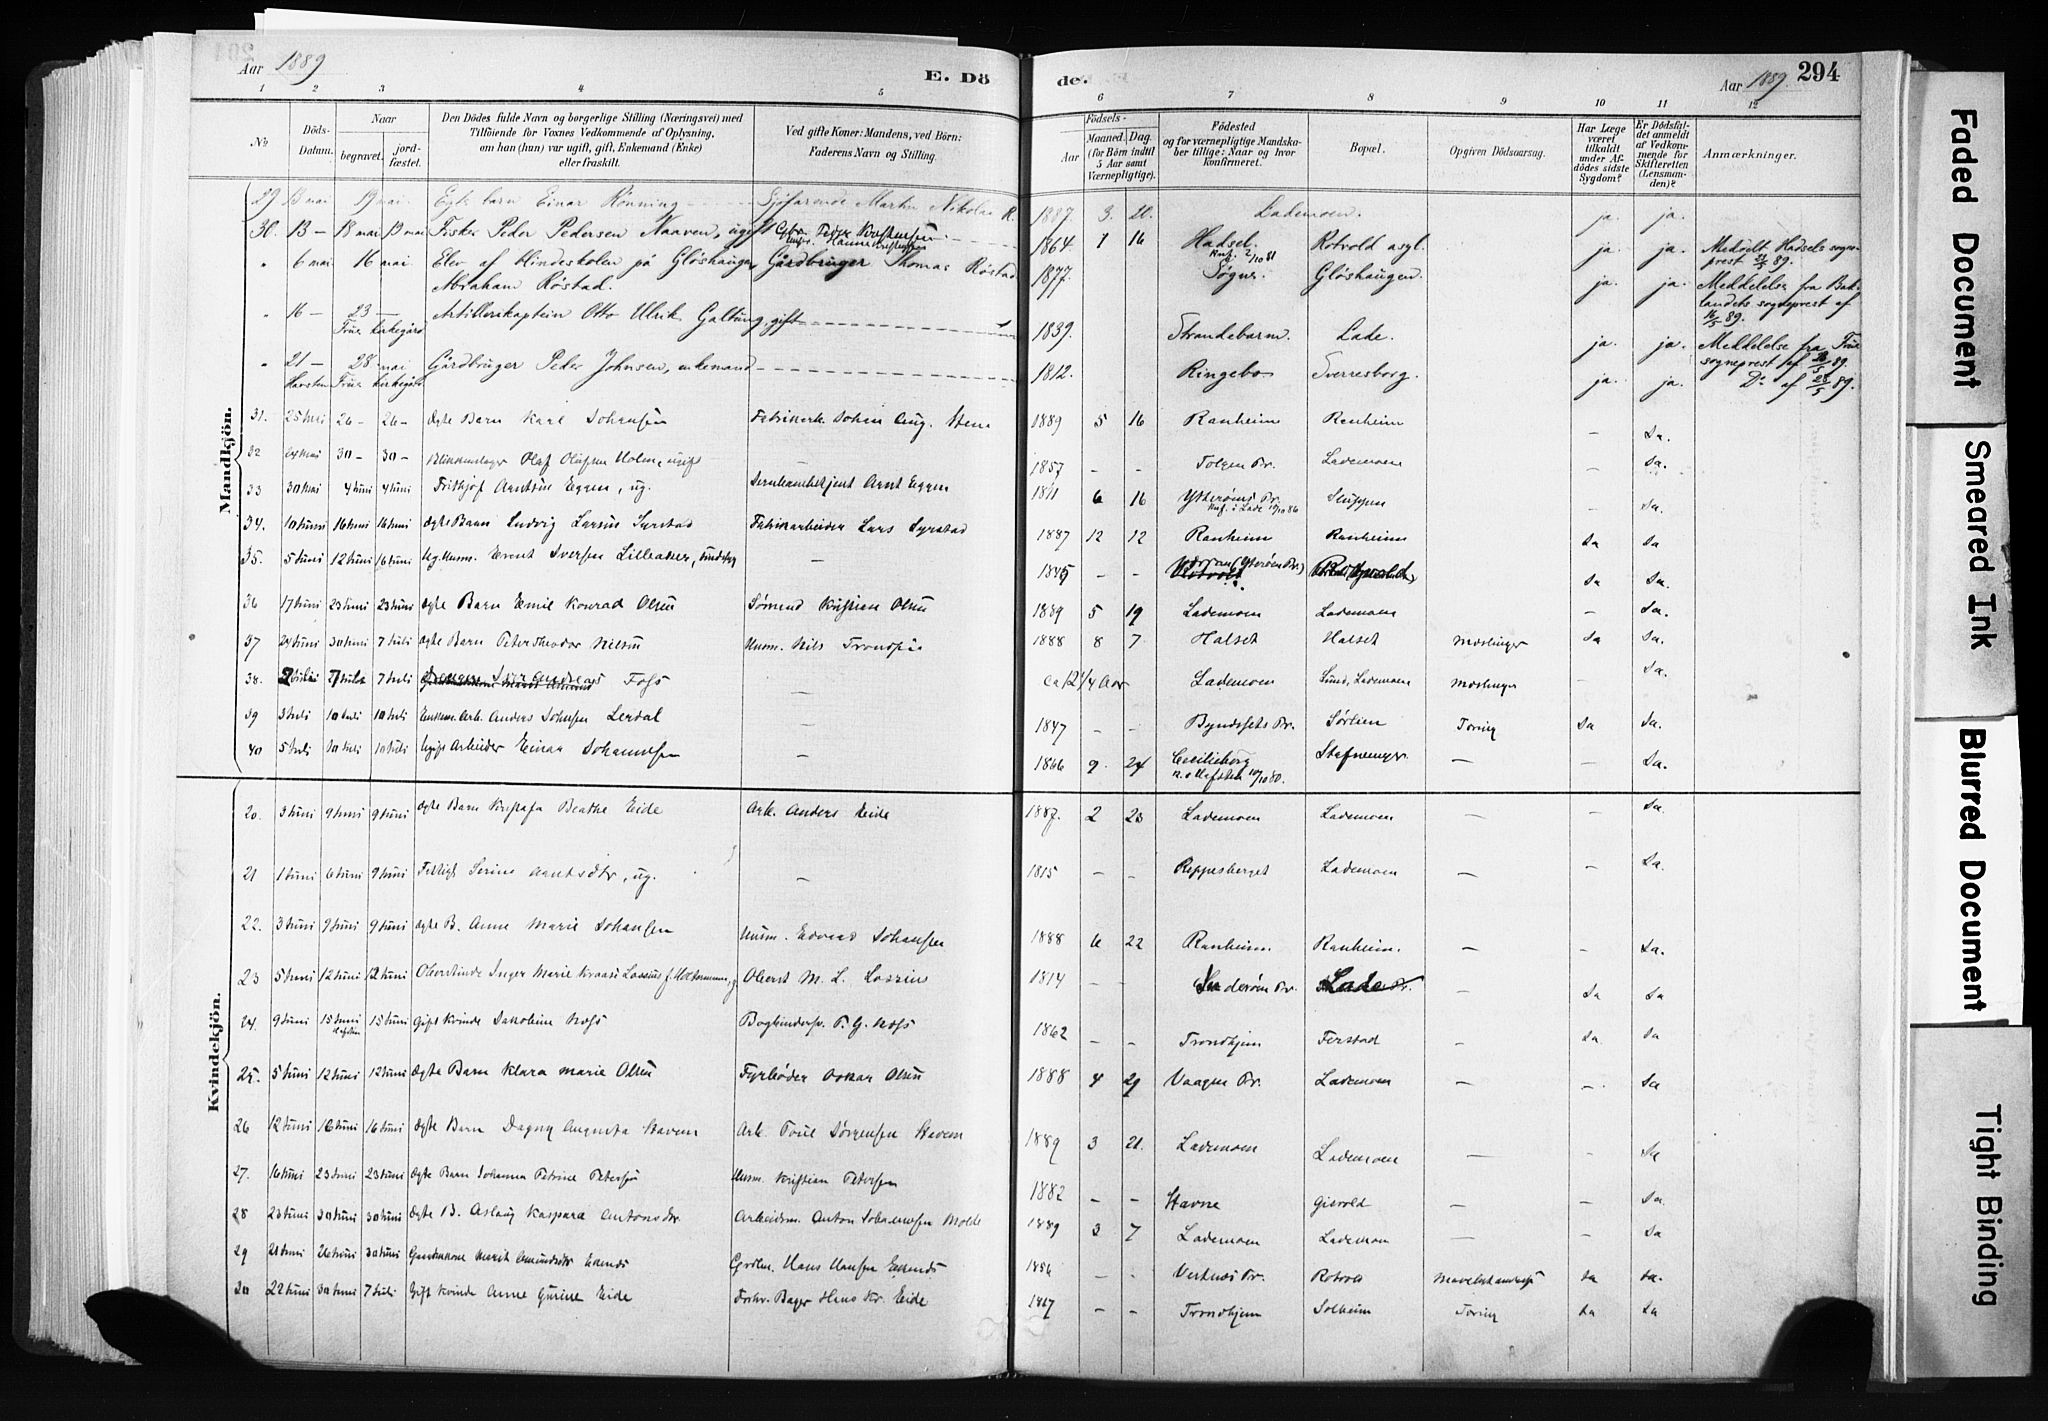 Aar 1889
E. Dö
de.
Aar 1889.
294
1 2 3 4 5 6 7 8 9 10 11 12
No
Döds-Datum.
Naar
begravet.
jord-fæstet.
Den Dödes fulde Navn og borgerlige Stilling (Næringsvei) med
Tilföiende for Voxnes Vedkommende af Oplysning,
om han (hun) var ugift, gift, Enkemand (Enke)
eller fraskilt.
Ved gifte Koner: Mandens, ved Börn:
Faderens Navn og Stilling.
Födsels-
Aar
Maaned. Dag.
(for Börn indtil
5 Aar samt
Værnepligtige).
Födested
og for værnepligtige Mandska-
ber tillige: Naar og hvor
konfirmeret.
Bopæl.
Opgiven Dödsaarsag.
Har Læge
været
tilkaldt
under Af-
dödes sidste
Sygdom?
Er Dödsfal-
det anmeldt
af Vedkom-
mende for
Skifteretten
(Lensman-
den)?
Anmærkninger.
Mandkjön.
29 13 mai 19 mai. Egte barn Einar Rønning Sjöfarende Martin Nikolai R. 1887 3. 20. Lademoen. ja. ja.
30. 13 — 18 mai 19 mai Fisker Peder Pedersen Naaven, ugift 1864 1 16 Hadsel. Rotvold asyl. ja. ja. Meddelt Hadsels sogne-
Konf. 2/10 81 prest 89.
" 6 mai 16 mai. Elev af blindeskolen på Gløshaugen Gårdbruger Thomas Röstad 1877. Søgne. Gløshaugen. ja. ja. Meddelelse fra Bak-
Abraham Röstad. landets sogneprest af
16/5 89.
" 16 — 23 — Artillerikaptein Otto Ulrik Galtung, gift 1839. Strandebarm. Lade. ja. ja. Meddelelse fra Frue
Frue kirkegård sogneprest af 89.
" 21 — 28 mai Gårdbruger Peder Johnsen, enkemand 1812. Ringebo Sverresborg. ja. ja. Do af 28/5 89.
Frue kirkegård
31. 25 26 — 26 — Ægte Barn Karl Johansen Fabrikarb. Johan Aug. 1889 5 16 Ranheim Ranheim — Ja.
32 24 Mai 30 — 30 — Blikkenslager Olaf Olufsen Holm, ugift 1857 — — Tolgen Pr. Lademoen — Ja.
33 30 Mai 4 Juni 4 Juni Fritkjof Arntsen Eggen, ug. Jernbanebetjent Arnt Eggen 6 16 Ytterøens Pr. Sluppen — Ja.
Konf. i Lade 10/10 86
34. 10 Juni 16 Juni 16 Juni Ægte Barn Ludvig Larsen Syrstad Fabrikarbeider Lars Syrstad 1887 12 12 Ranheim Ranheim Ja Ja
35. 5 Juni 12 Juni 16 Juni Ug. Husm. Ernt Iversen Lilleaker, — 1845 — — (Ytterøen Pr.) Ja Ja.
36 17 Juni 23 Juni 23 Juni Ægte Barn Emil Konrad Olsen Sömand Kristian Olsen 1889 5 19 Lademoen Lademoen — Ja.
37 24 Juni 30 Juni 7 Juli Ægte Barn Peter Theodor Nilsen Husm. Nils Trondsen 1888 8 7 Halset Halset Mæslinger Ja Ja.
38. 2 Juli 7 Juli 7 Juli Iver Andreas Foss — ca 12 1/4 Aar Lademoen Lademoen Mæslinger — Ja.
39 3 Juli 10 Juli 10 Juli Enkem. Arb. Anders Johnsen Lerdal — 1847 — — Byneslets Pr. Sörlien Tæring Ja Ja.
40 5 Juli 10 Juli 10 Juli Ugift Arbeider Einar Johannesen — 1866 9 24 Cecilieborg — — Ja.
10/10 80.
Kvindekjön.
20. 3 Juni 9 Juni 9 Juni Ægte Barn Kristofa Beathe Eide Arb. Anders Eide 1887. 2 23 Lademoen Lademoen — — Ja.
21 1 Juni 6 Juni 9 Juni Fattigl. Serine Arntsdtr, ug. — 1815 — — Reppesberget Lademoen — — Ja.
22. 3 Juni 9 Juni 9 Juni Ægte B. Anne Marie Johansen Husm. Edvard Johansen 1888 6 22 Ranheim. Ranheim. — — Ja.
23 5 Juni 12 Juni 12 Juni Oberstinde Inger Marie Lossius f. Oberst M. L. Lossius 1814 — — Inderøen Pr. Lade — Ja Ja
24. 9 Juni 15 Juni 15 Juni Gift Kvinde Jakobine Moss Bogbindersv. P. G. Moss 1862 — — Trondhjem Ferstad — Ja Ja
25. 5 Juni 12 Juni 12 Juni Ægte Barn Klara Marie Olsen Fyrbøder Oskar Olsen 1888 4 29 Vaagen Pr. Lademoen — — Ja
26 12 Juni 16 Juni 16 Juni Ægte Barn Dagny Augusta Havem Arb. Poul Jørgensen Havem 1889 3 21. Lademoen Lademoen — — Ja
27. 16 Juni 23 Juni 23 Juni Ægte Barn Johanna Petrine Petersen Husm. Kristian Petersen 1882 — — Havne Gisvold — — Ja.
28 23 Juni 30 Juni 30 Juni Ægte B. Aslaug Kaspara Antonsdtr. Arbeidsm. Anton Johannesen Molde 1889 3 7 Lademoen Lademoen — — Ja
29 21 Juni 26 Juni 30 Juni Gaardkone Marit Amundsdtr Hans Hansen 1856 — — Verknes Pr. Rotvold Ja Ja.
30 22 Juni 30 Juni 7 Juli Gift Kvinde Anne Gurine Eide Forhv. Bager Hans Kr. Eide — — Trondhjem Solheim Tæring Ja Ja
Faded Document
Smeared Ink
Blurred Document
Tight Binding